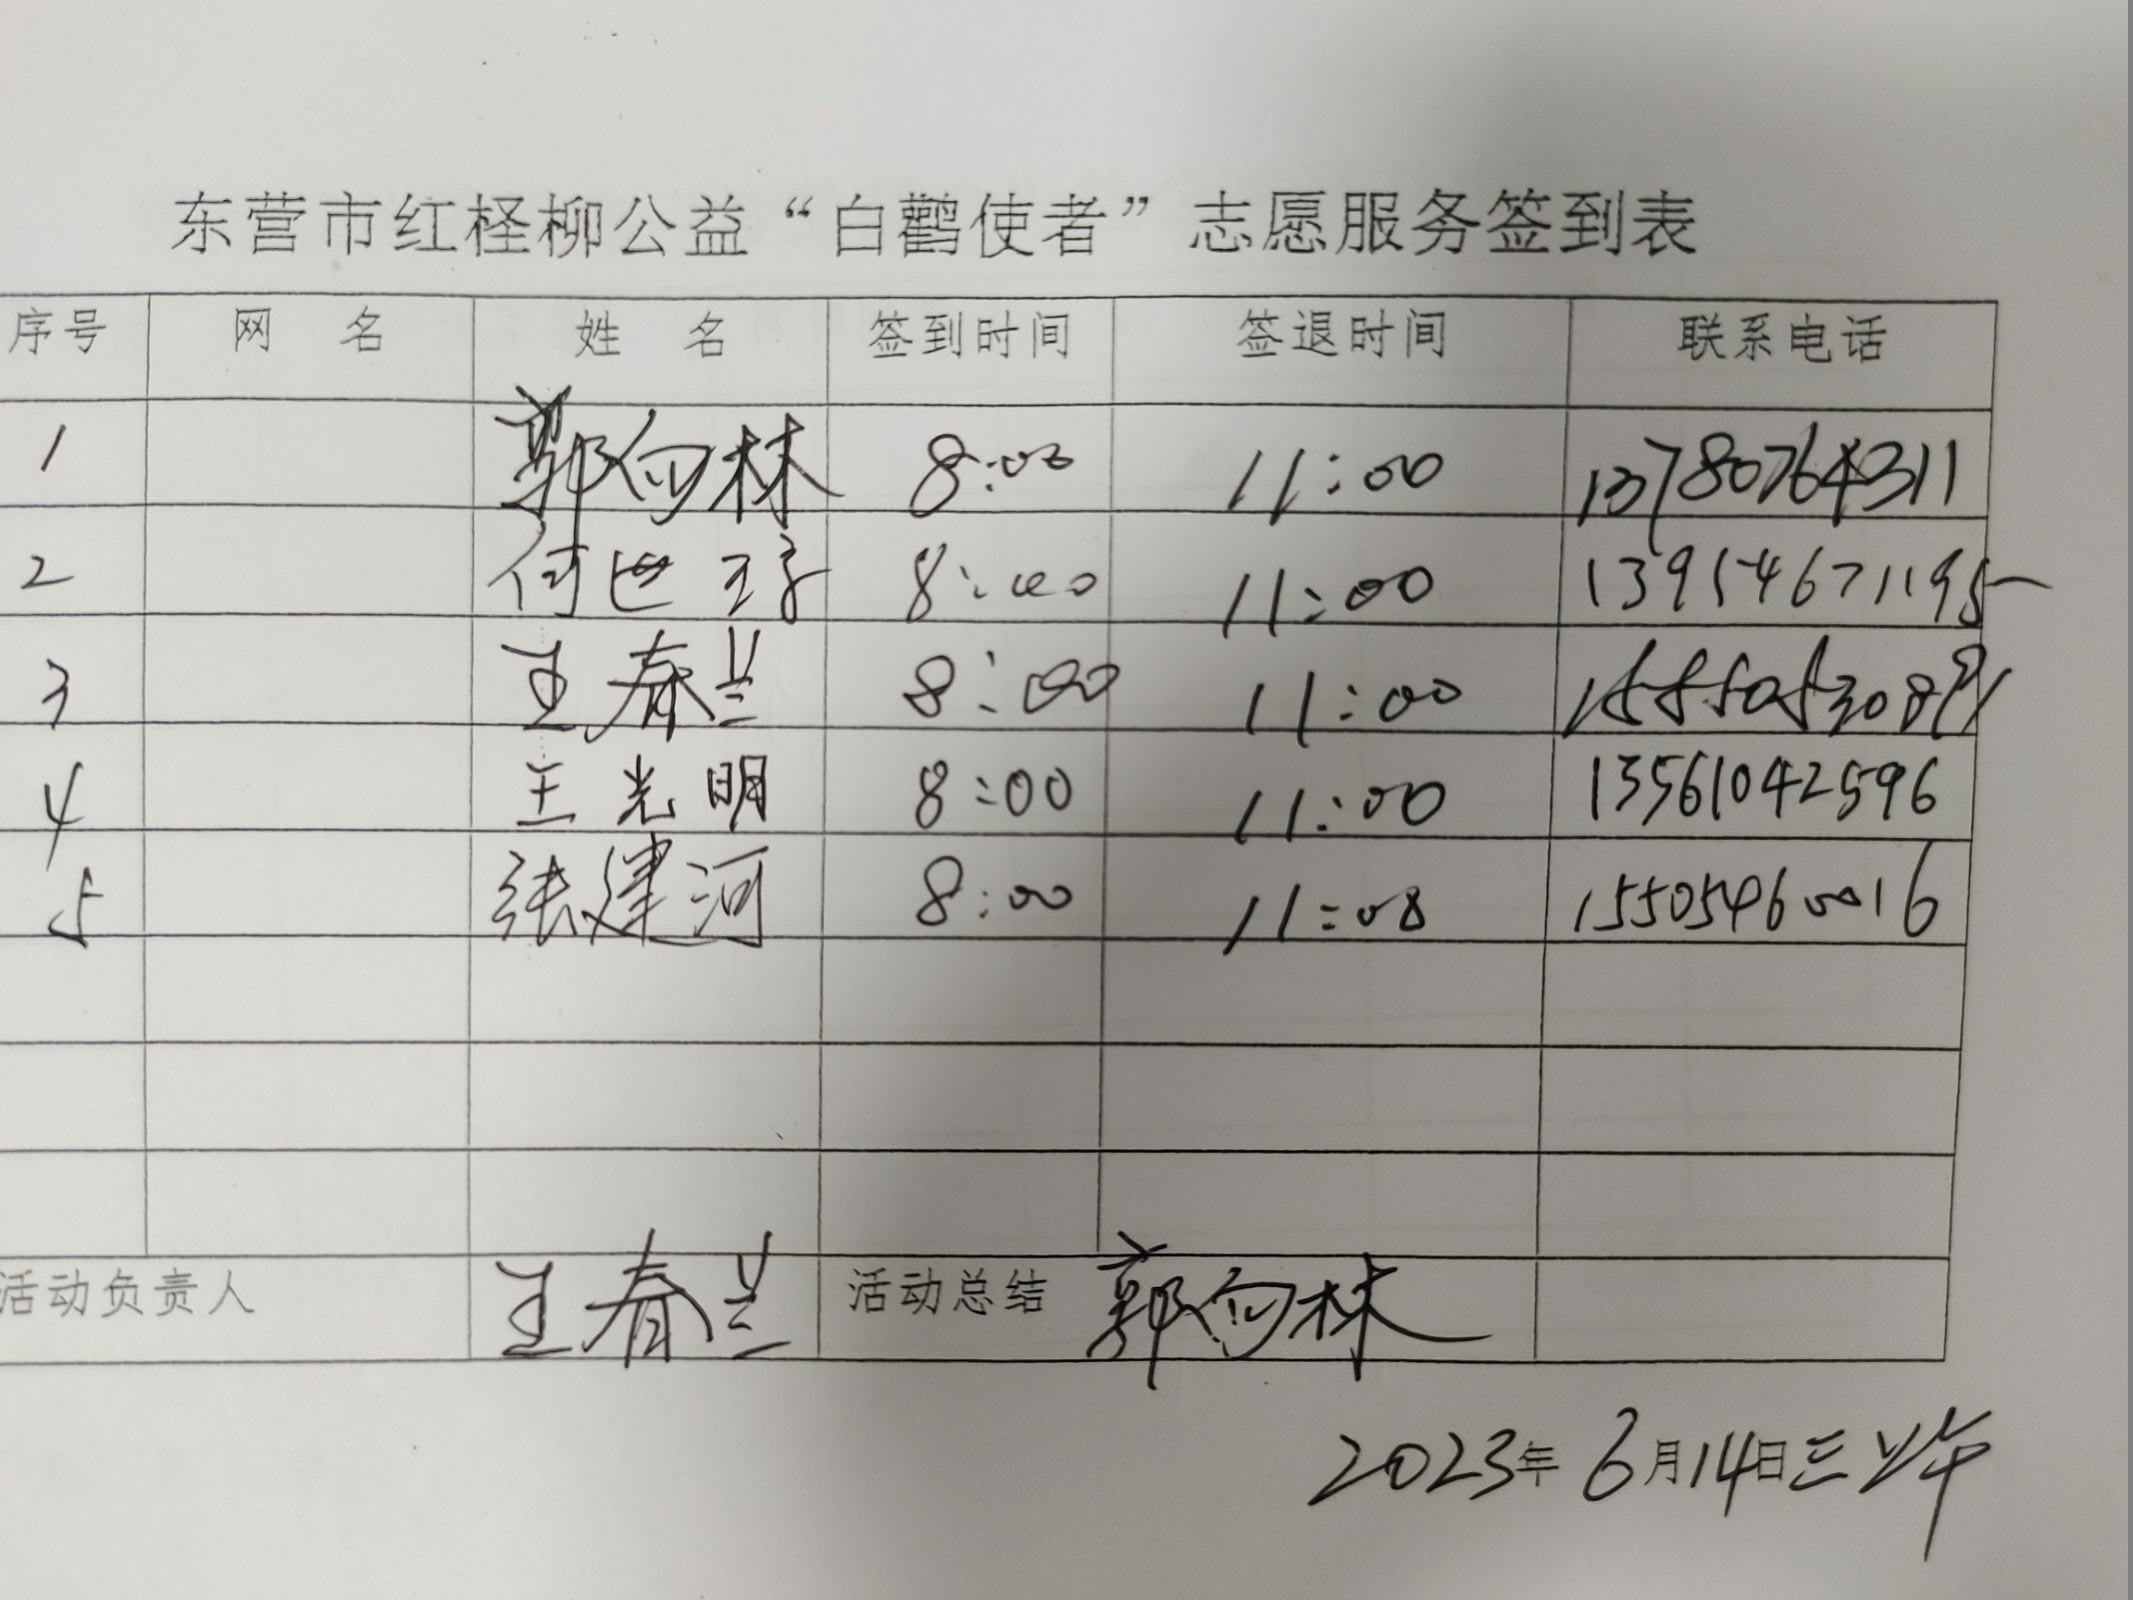 东营市红柽柳公益“白鹳使者”志愿服务签到表
序号 网 名 姓 名 签到时间 签退时间 联系电话
1 郭向林 8:00 11:00 13780764311
2 何世 8:00 11:00 13954671195
3 王春兰 8:00 11:00 15550530891
4 王光明 8:00 11:00 13561042596
5 张建河 8:00 11:00 15505460016
活动负责人 王春兰 活动总结 郭向林
2023年6月14日三上午